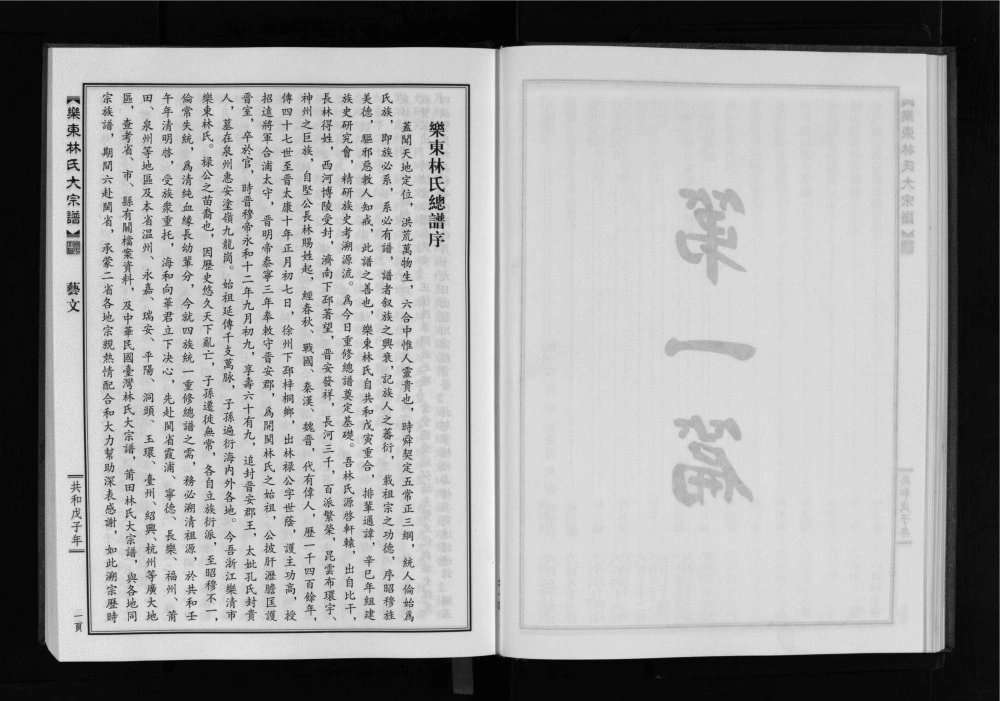 樂東林氏總譜序
蓋聞天地定位，洪荒萬物生，六合中惟人靈貴也，時舜契定五常正三綱，統人倫始爲
氏族，即族必系，系必有譜，譜者叙族之興衰，記族人之蕃衍，載祖宗之功德，序昭穆旌
美德，驅邪惡教人知戒，此譜之善也，樂東林氏自共和戊寅重合，排輩通諱，辛巳年組建
族史研究會，精研族史考溯源流。爲今日重修總譜奠定基礎。吾林氏源啓軒轅，出自比干，
長林得姓，西河博陵受封，濟南下邳著望，晉安發祥，長河三千，百派繁榮，昆雲布環宇、
神州之巨族，自堅公長林賜姓起，經春秋、戰國、秦漢、魏晉，代有偉人，歷一千四百餘年，
傳四十七世至晉太康十年正月初七日，徐州下邳梓桐鄉，出林禄公字世蔭，護主功高，授
招遠將軍合浦太守，晉明帝泰寧三年奉敕守晉安郡，爲開閩林氏之始祖，公披肝瀝膽匡護
晉室，卒於官，時晉穆帝永和十二年九月初九，享壽六十有九，追封晉安郡王，太妣孔氏封貴
人，墓在泉州惠安塗嶺九龍崗。始祖延傳千支萬脉，子孫遍衍海内外各地。今吾浙江樂清市
樂東林氏。禄公之苗裔也，因歷史悠久天下亂亡，子孫遷徙無常，各自立族衍派，至昭穆不一，
倫常失統，爲清純血緣長幼輩分，今就四族統一重修總譜之需，務必溯清祖源，於共和壬
午年清明啓，受族衆重托，海和向華君立下决心，先赴閩省霞浦、寧德、長樂、福州、莆
田、泉州等地區及本省温州、永嘉、瑞安、平陽、洞頭、玉環、臺州、紹興、杭州等廣大地
區，查考省、市、縣有關檔案資料，及中華民國臺灣林氏大宗譜，莆田林氏大宗譜，與各地同
宗族譜，期間六赴閩省，承蒙二省各地宗親熱情配合和大力幫助深表感謝，如此溯宗歷時
【樂東林氏大宗譜】
藝文
共和戊子年
一頁
第一篇
【樂東林氏大宗譜】
共和戊子年